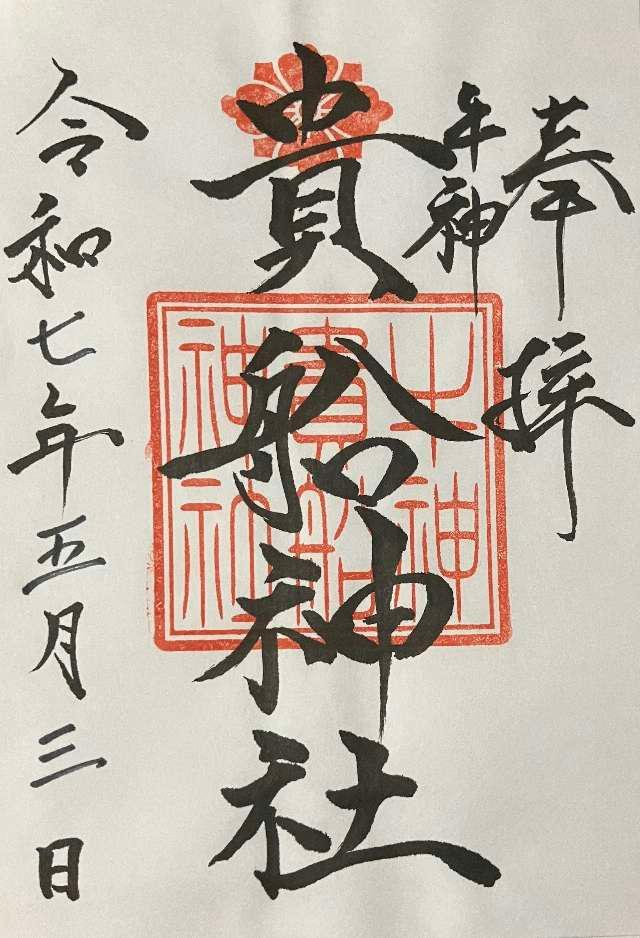 奉拝
牛神
貴船神社
牛神
貴船
神社
令和七年五月三日